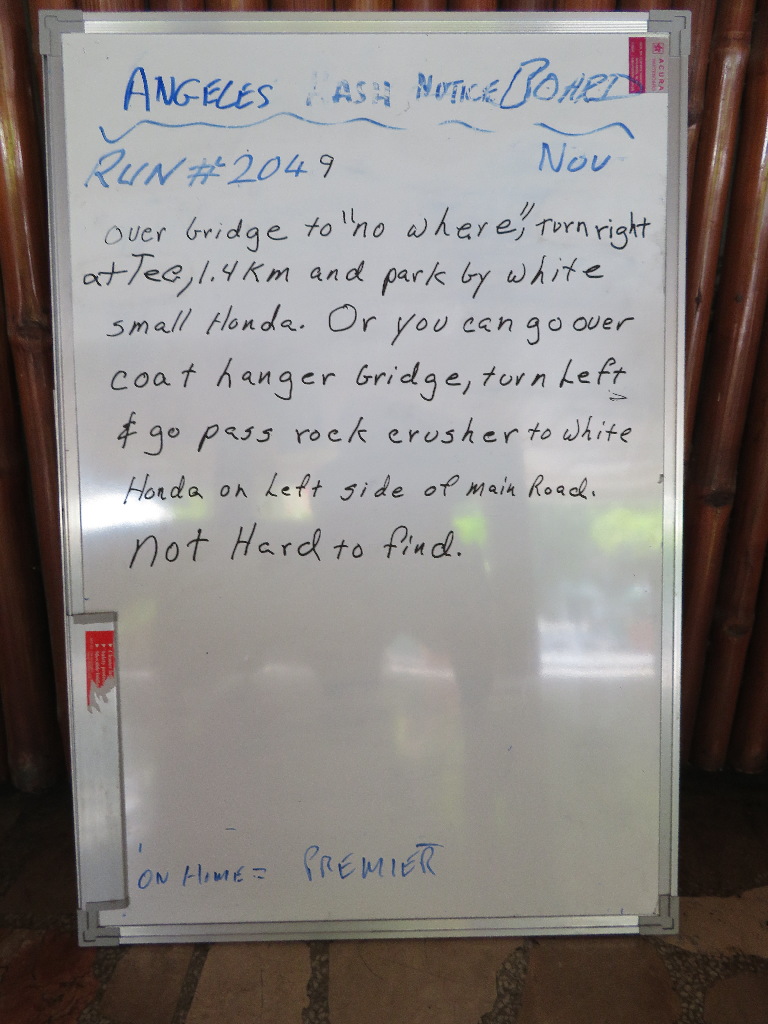 ANGELES HASH NOTICE BOARD
RUN # 2049 NOV
over bridge to "no where", turn right
at Tee, 1.4 Km and park by white
small Honda. Or you can go over
coat hanger bridge, turn Left
& go pass rock crusher to white
Honda on Left side of main Road.
not Hard to find.
ON HOME = PREMIER
ACURA